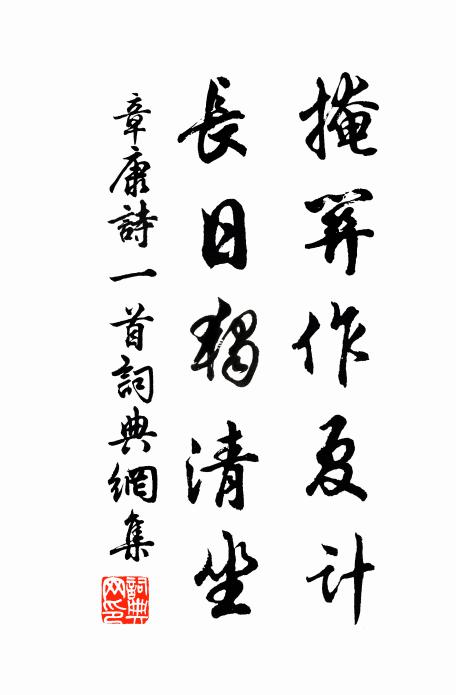 掩關作夏計
長日獨清坐
章康詩一首詞典網集
詞典
网印